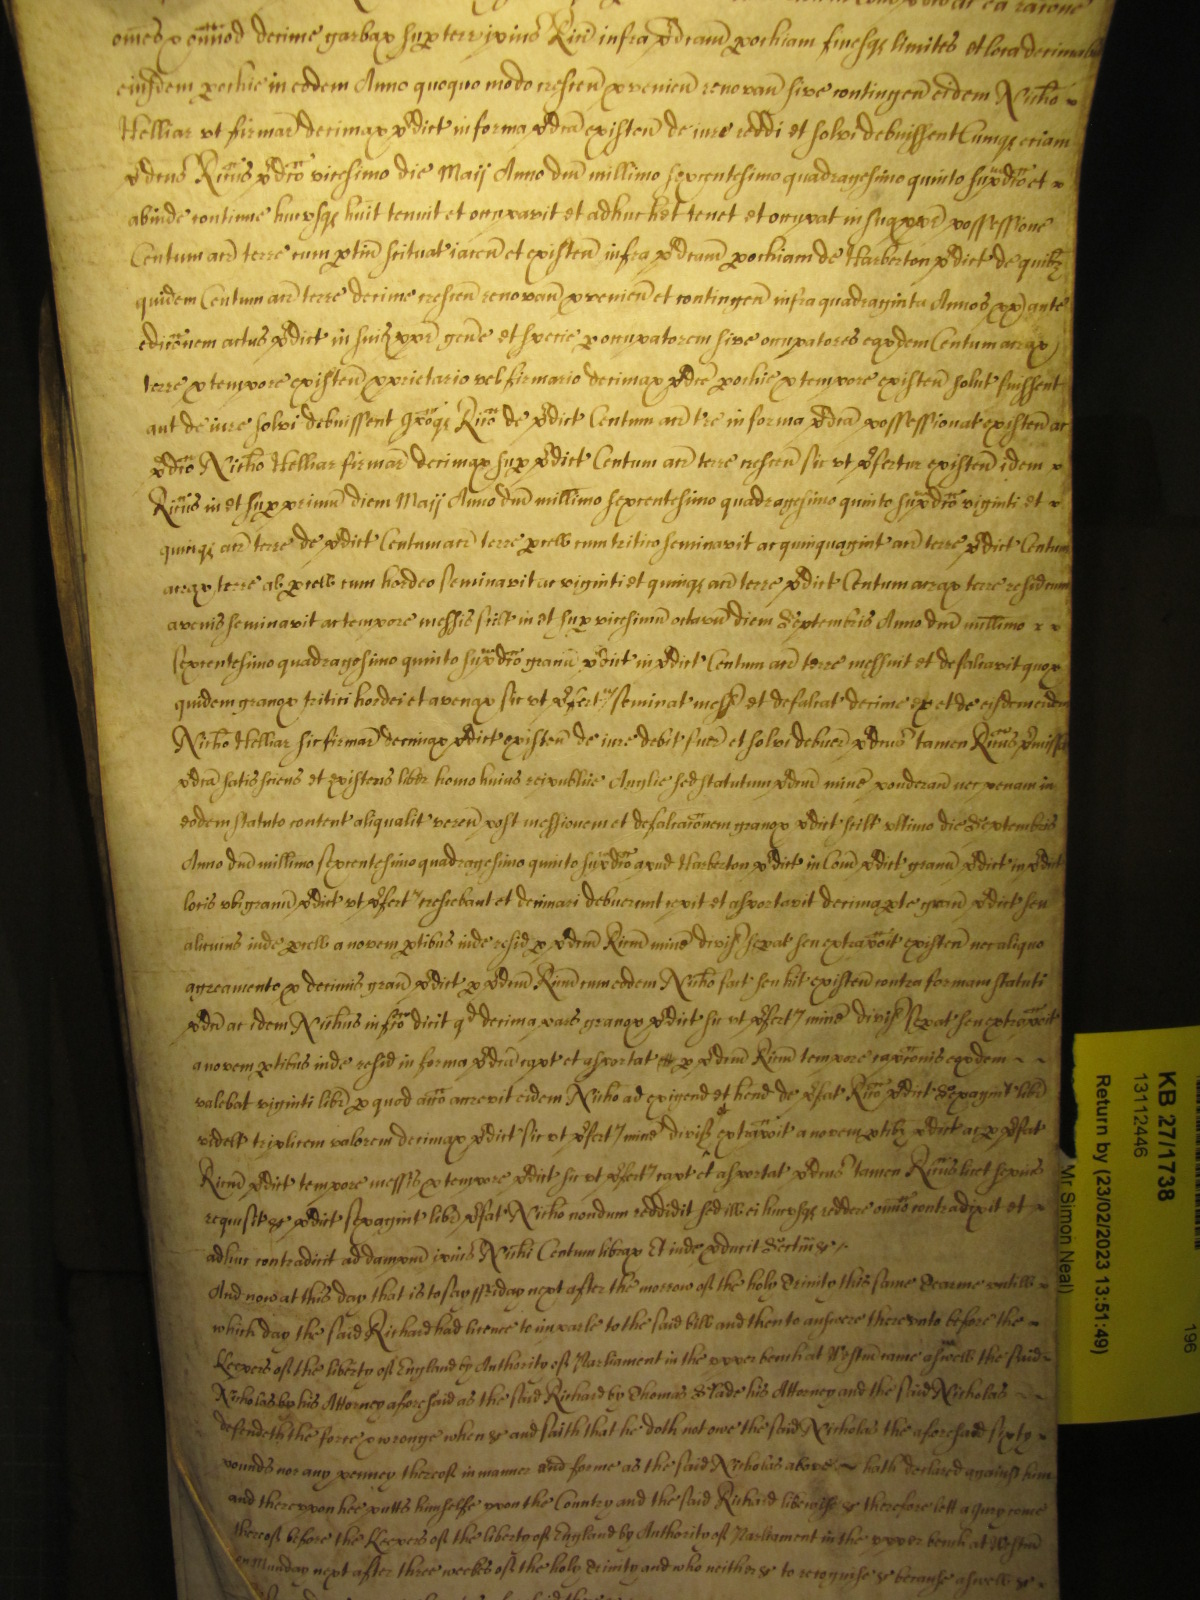 om̃es & om̃iod decime garbaꝝ sup terr ip̃ius Ric̃i infra p̃dcam̃ pochiam finesqꝫ limites et loca decimabil
eiusdem pochie in eodem Anno quoquo modo crescen̄ pvenien̄ renovan̄ sive contingen̄ eidem Nicho
Helliar vt firmar̃ decimaꝝ p̃dict in forma p̃dca existen̄ de iure reddi et solvi debuissent Cumqꝫ eciam
p̃dcus Ricus p̃dco vicesimo die Maij Anno dn̄i millimo sexcentesimo quadragesimo quinto sup̃dco et
abinde continue hucusqꝫ huit tenuit et occupavit et adhuc het tenet et occupat in sua ppr̃ possessione
Centum acr̃ terre cum ptin̄ scituat iacen̄ et existen̄ infra p̃dcam̃ pochiam de Harberton p̃dict de quibꝫ
quidem Centum acr̃ terre decime crescen̄ renovan̄ pvenien̄ et contingen̄ infra quadraginta Annos px̃ ante
edic̃onem actus p̃dict in suis ppr̃ gen̄e et specie p occupatorem sive occupatores eaꝝdem Centum acraꝝ
terre p tempore existen̄ pprietario vel firmario decimaꝝ p̃dce pochie p tempore existen̄ solut fuissent
aut de iure solvi debuissent Ip̃oqꝫ Rico de p̃dict Centum acr̃ tre in forma p̃dca possessionat existen̄ ac
p̃dco Nicho Helliar firmar̃ decimaꝝ sup p̃dict Centum acr̃ terre crescen̄ sic vt p̃fertur existen̄ idem
Ricus in et sup primu᷑ diem Maij Anno dn̄i millimo sexcentesimo quadragesimo quinto sup̃dco viginti et
quinqꝫ acr̃ terre de p̃dict Centum acr̃ terre pcell cum tritico seminavit ac quinquagint acr̃ terre p̃dict Centum
acraꝝ terre al pcell cum hordeo seminavit ac viginti et quinqꝫ acr̃ terre p̃dict Centum acraꝝ terre residuum
avenis seminavit ac tempore messis scilt in et sup vicesimu᷑ octavu᷑ diem Septembris Anno dn̄i millimo
sexcentesimo quadragesimo quinto sup̃dco granu᷑ p̃dict in p̃dict Centum acr̃ terre messuit et defalcavit quoꝝ
quidem granoꝝ tritici hordei et avenaꝝ sic vt p̃fert seminat mess et defalcat decime ex et de eisdem eidem
Nicho Helliar sic firmar̃ decimaꝝ p̃dict existen̄ de iure debit fuer̃ et solvi debuer̃ p̃dcus tamen Ricus p̃miss
p̃dca satis sciens et existens liber homo huius reipublice Anglie sed statutum p̃dcm̃ mine ponderan̄ nec penam in
eodem statuto content aliqualit veren̄ post messionem et defalcac̃onem granoꝝ p̃dict scilt vltimo die Septembris
Anno dn̄i millimo sexcentesimo quadragesimo quinto sup̃dco apud Harberton p̃dict in Com̃ p̃dict granu᷑ p̃dict in p̃dict
locis vbi granu᷑ p̃dict vt p̃fert crescebant et decimari debuerunt cepit et asportavit decima pte gran̄ p̃dict seu
alicuius inde pcell a novem ptibus inde resid p p̃dcm̃ Ricum mine divis sepat seu extraposit existen̄ nec aliquo
agreamento p decimis gran̄ p̃dict p p̃dcm̃ Ricum cum eodem Nicho fact seu hit existen̄ contra formam statuti
p̃dci ac idem Nichus in fco dicit qd decima pars granoꝝ p̃dict sic vt p̃fert mine divis sepat seu extraposit
a novem ptibus inde resid in forma p̃dca capt et asportat p p̃dcm̃ Ricum tempore capc̃onis eaꝝdem
valebat viginti libr̃ p quod acc̃o accrevit eidem Nicho ad exigend et hend de p̃fat Rico p̃dict Sexagint libr̃
videlt triplicem valorem decimaꝝ p̃dict sic vt p̃fert mine divis et extraposit a novem ptibꝫ p̃dict ac p p̃fat
Ricum p̃dict tempore messis p tempore p̃dict sic vt p̃fert capt et asportat p̃dcus tamen Ricus licet sepius
requisit &c p̃dict sexagint libr̃ p̃fat Nicho nondum reddidit sed ill ei hucusqꝫ reddere om̃ino contradixit et
adhuc contradicit ad dampnu᷑ ip̃ius Nichi Centum libraꝝ Et inde pducit Sectam &c
And now at this day that is to say ffriday next after the morrow of the holy Trinity this same Tearme vntill
which day the said Richard had licence to imparle to the said bill and then to answere therevnto before the
Keepers of the liberty of England by Authority of Parliament in the vpper bench at Westm̃ came aswell the said
Nicholas by his Attorney aforesaid as the said Richard by Thomas Slade his Attorney and the said Nicholas
defendeth the force & wronge when &c and saith that he doth not owe the said Nicholas the aforesaid sixty
pounds nor any penney thereof in manner and forme as the said Nicholas above hath declared against him
and therevpon hee putts himselfe vpon the Country and the said Richard likewise &c therefore lett a Jury come
thereof before the Keepers of the liberty of England by Authority of Parliament in the vpper bench at Westm̃
on Munday next after three weekes of the holy Trinity and who neither &c to recognise &c because aswell &c
KB 27/1738
13112446
Return by (23/02/2023 13:51:49)
Mr. Simon Neal)
196